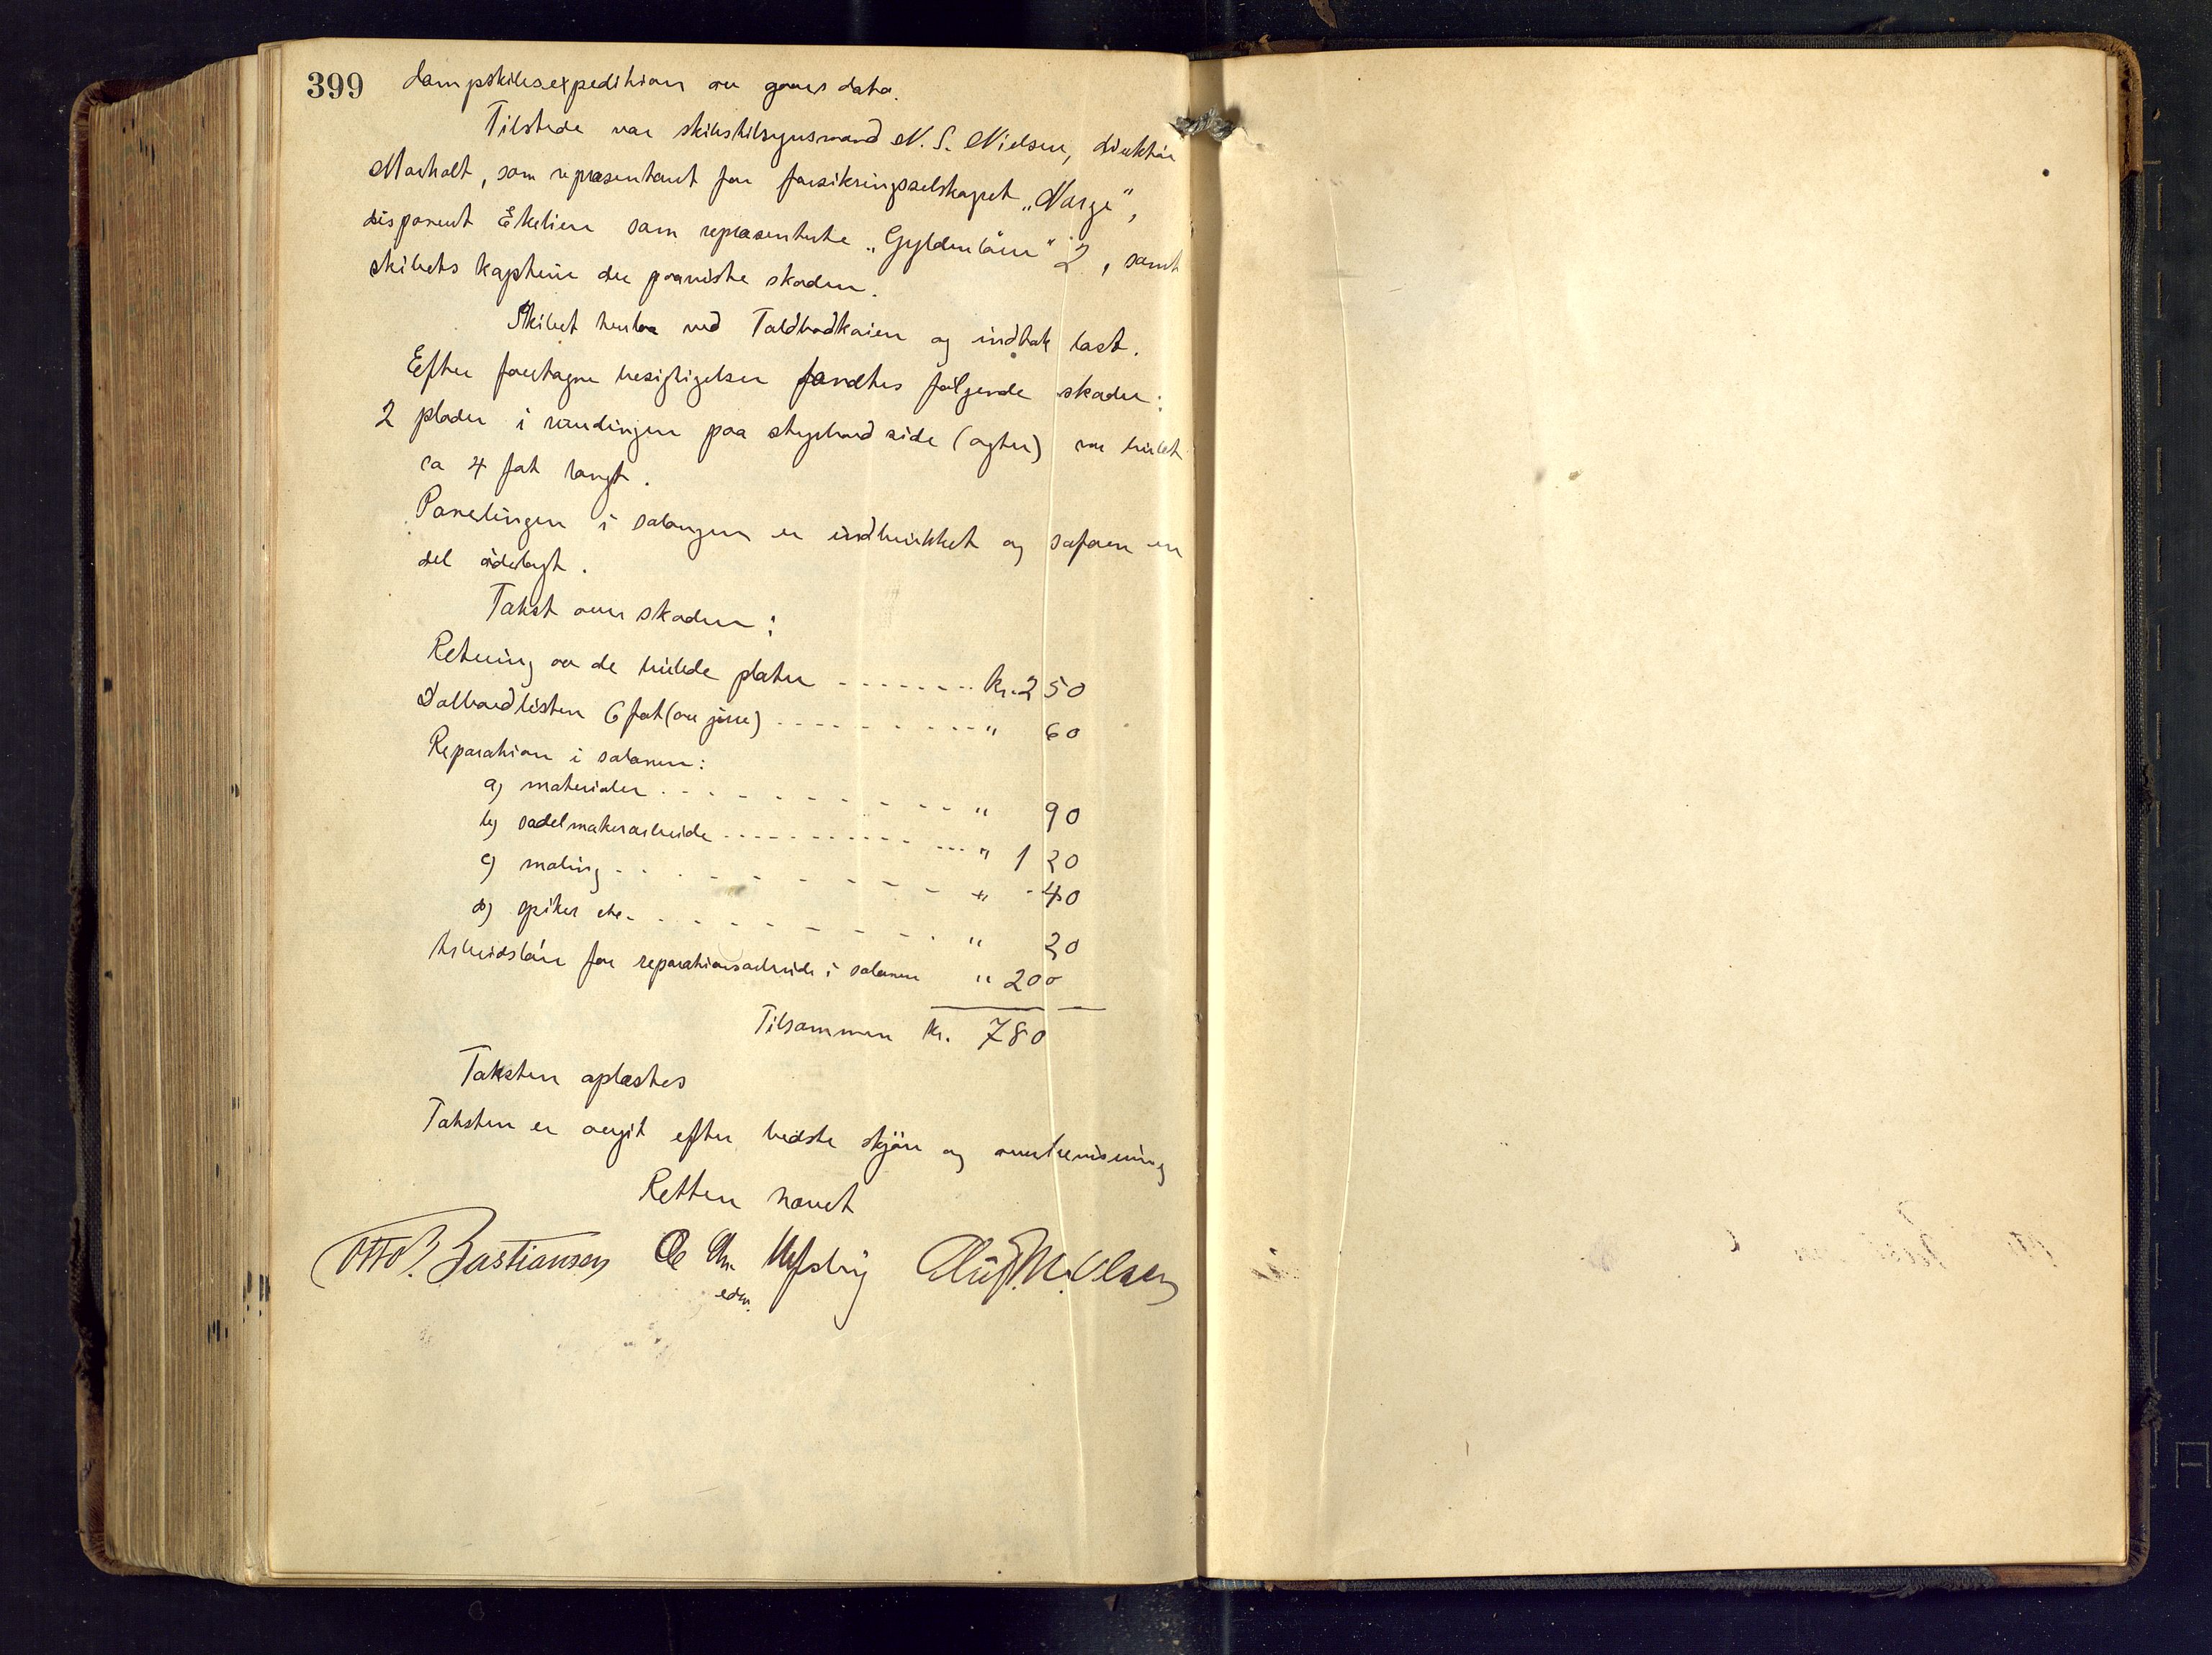 399
dampskibsexpedition av gaars dato.
Tilstede var skibstilsynsmand N. S. Nielsen, direktör
Morholt, som representant for forsikringsselskapet „Norge",
disponent Ekelien som representerte „Gyldenlöve" 2, samt
skibets kaptein der paaviste skaden.
Skibet henlaa ved Toldbodkaien og indtok last.
Efter foretagne besigtigelser fandtes følgende skader:
2 plader i rundingen paa styrbord side (agter) var bulet
ca 4 fot langt.
Panelingen i salongen er indtrukket og sofaen en
del ödelagt.
Takst over skaden:
Retning av de bulede plater - - - - - - - kr. 250
Dolbordlisten 6 fot (av jern) - - - - - - - - - " 60
Reparation i salonen:
a) materialer - - - - - - - - - - " 90
b) sadelmakerarbeide - - - - - - - - - - " 120
c) maling - - - - - - - - - " 40
d) spiker etc. - - - - - - - - " 20
Arbeidslön for reparationsarbeide i salonen " 200
Tilsammen kr. 780
Taksten oplæstes
Taksten er avgit efter bedste skjön og overbevisning
Retten hævet
Otto B. Bastiansen Ole Chr. Olaf M. Olsen
edsv.